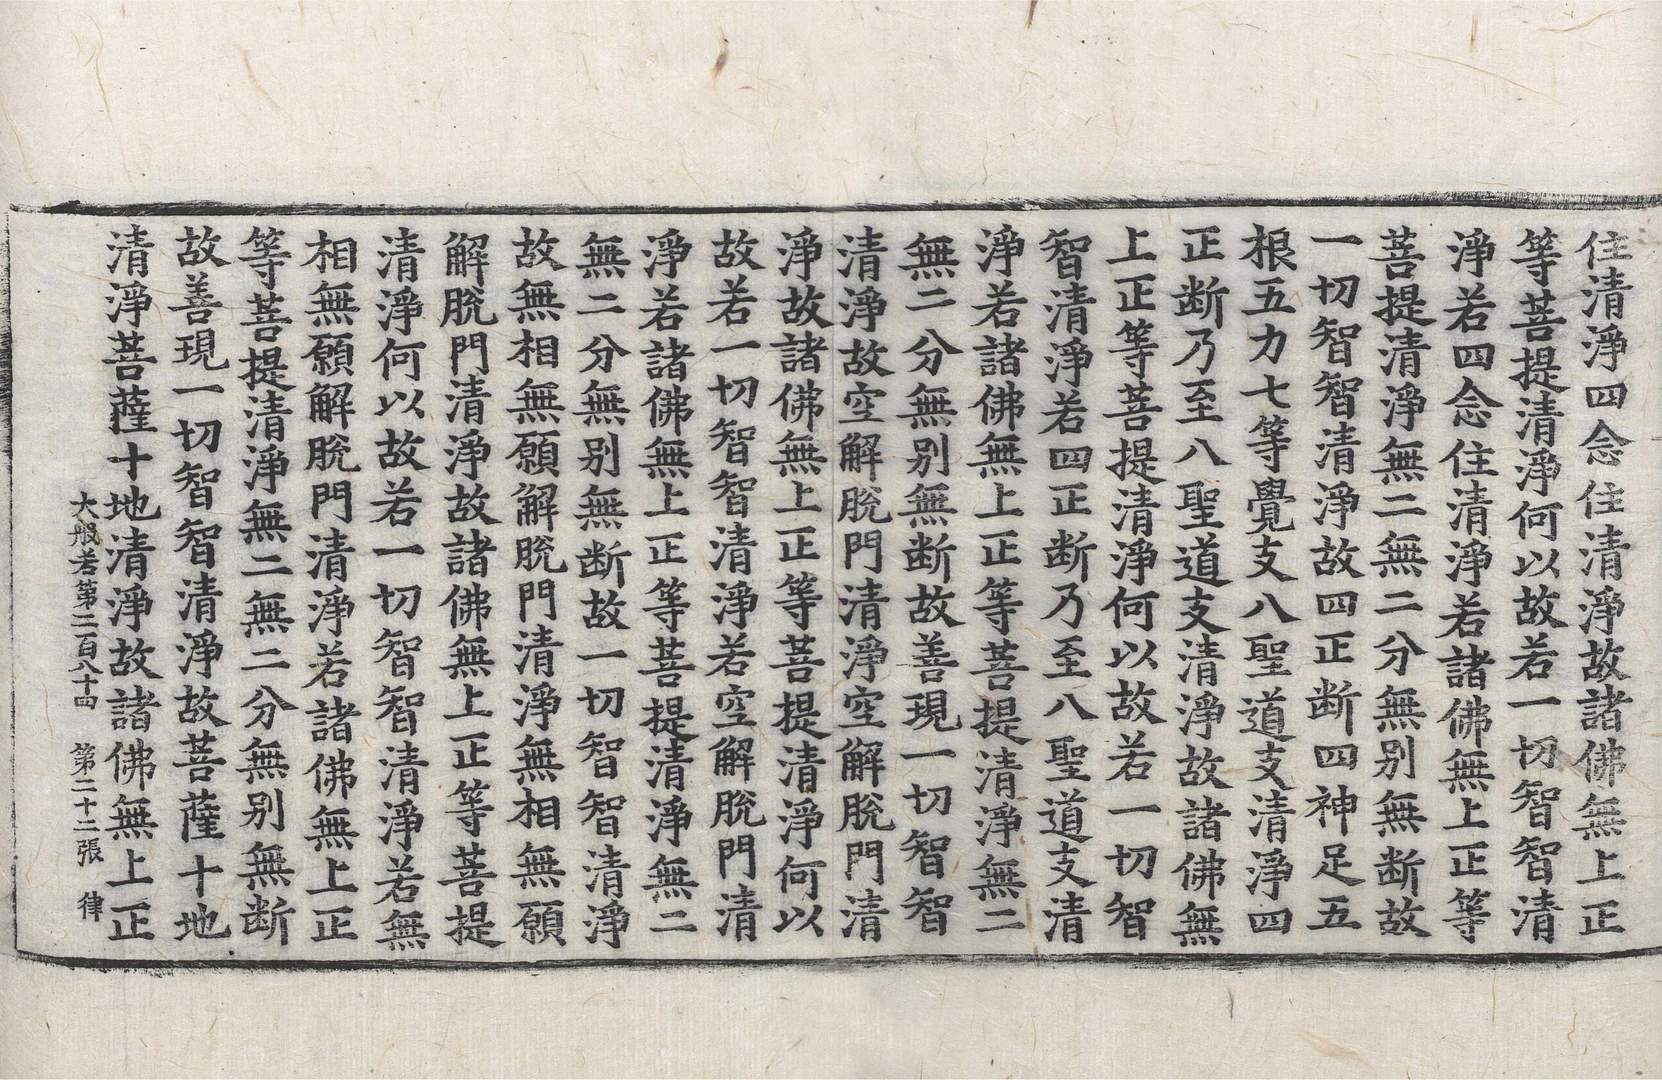 住清淨四念住清淨故諸佛無上正
等菩提清淨何以故若一切智智清
淨若四念住清淨若諸佛無上正等
菩提清淨無二無二分無別無斷故
一切智智清淨故四正斷四神足五
根五力七等覺支八聖道支清淨四
正斷乃至八聖道支清淨故諸佛無
上正等菩提清淨何以故若一切智
智清淨若四正斷乃至八聖道支清
淨若諸佛無上正等菩提清淨無二
無二分無別無斷故善現一切智智
清淨故空解脫門清淨空解脫門清
淨故諸佛無上正等菩提清淨何以
故若一切智智清淨若空解脫門清
淨若諸佛無上正等菩提清淨無二
無二分無別無断故一切智智清淨
故無相無願解脫門清淨無相無願
解脫門清淨故諸佛無上正等菩提
清淨何以故若一切智智清淨若無
相無願解脫門清淨若諸佛無上正
等菩提清淨無二無二分無別無断
故善現一切智智清淨故菩薩十地
清淨菩薩十地清淨故諸佛無上正
大般若第二百八十四 第二十二張 律